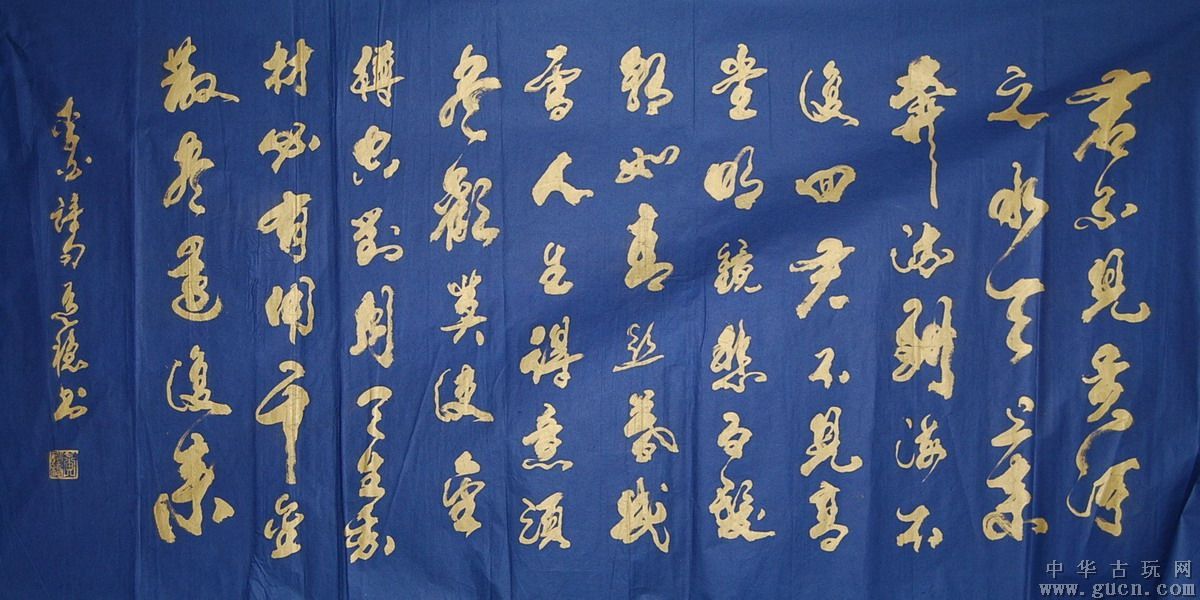 君不見黄河
之水天上来
奔流到海不
復回君不見高
堂明鏡悲白髮
朝如青絲暮成
雪人生得意須
尽歡莫使金
樽空對月天生我
材必有用千金
散尽還復来
李白詩句 书
中华古玩网
www.gucn.com